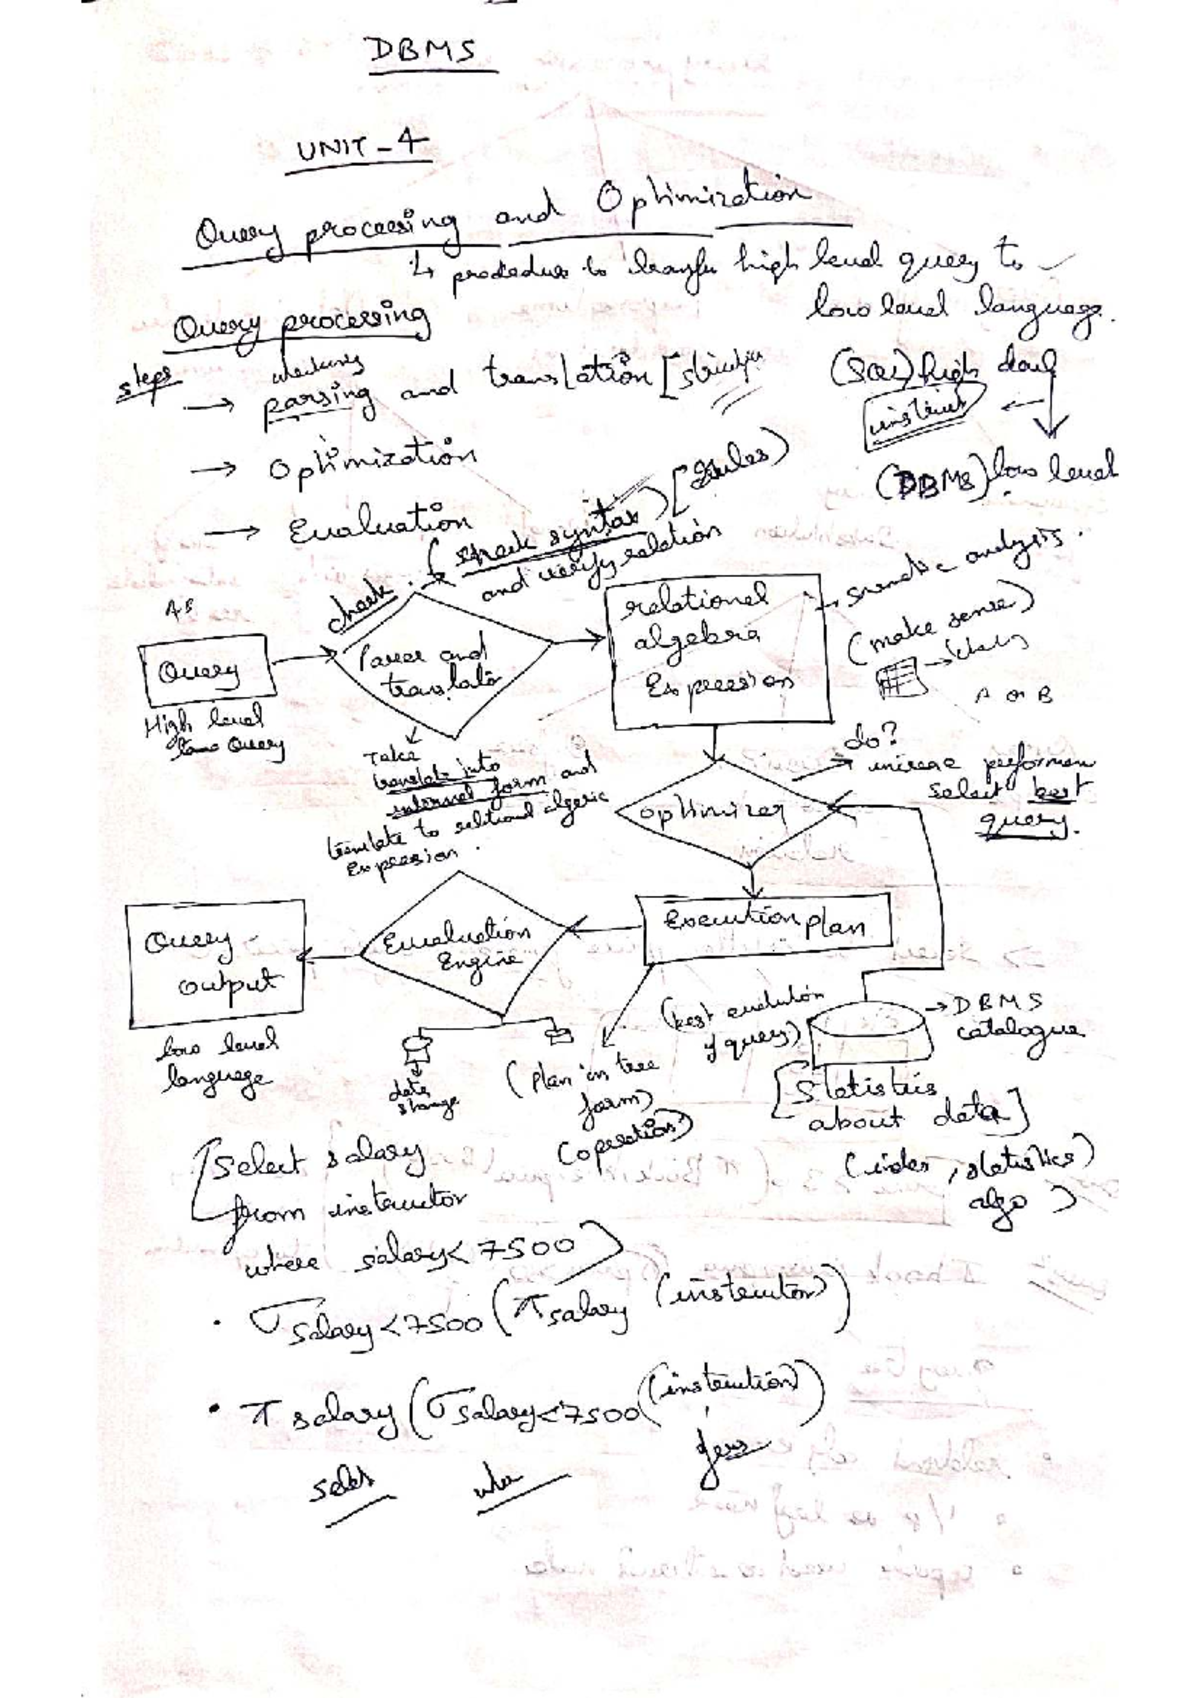 DBMS
UNIT-4
Query processing and Optimization
↳ procedure to transfer high level query to
low level language.
Query processing
steps
checking
→ parsing and translation [structure
(SQL) high level
instruct
→ Optimization
(DBMS) low level
→ Evaluation
check. (check syntax) [rules)
and verify relation
A B
Query
High level
Query
Parser and
translator
Take
translate into
internal form and
translate to relational algebric
Expression.
relational
algebra
Expression
→ semantic analysis.
(make sense)
A or B
do?
→ increase performance
select best
query.
optimizer
Execution plan
Evaluation
Engine
Query
output
low level
language
data
storage
(plan in tree
form)
(operations)
(best evaluation
of query)
→ DBMS
catalogue
[Statistics
about data]
(index, statistics)
algo )
Select salary
from instructor
where salary < 7500
· σ salary < 7500 (π salary (instructor))
· π salary (σ salary < 7500 (instruction))
select
where
from